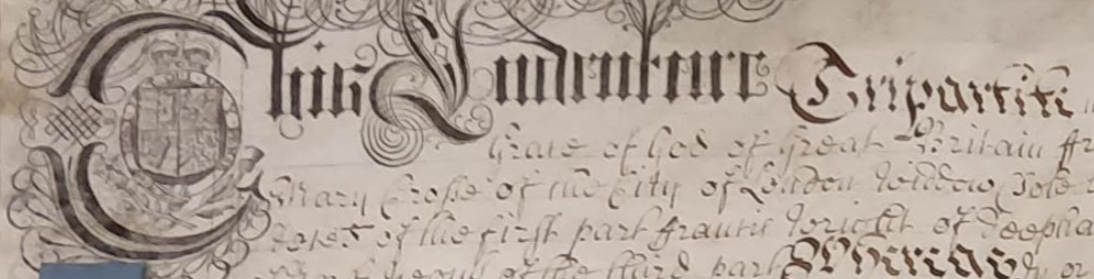 This Indenture Tripartite
Grace of God of Great Britain Fr
Mary Crosse of the City of London Widdow Sole
of the first part Francis Wright of
of the third part Whereas